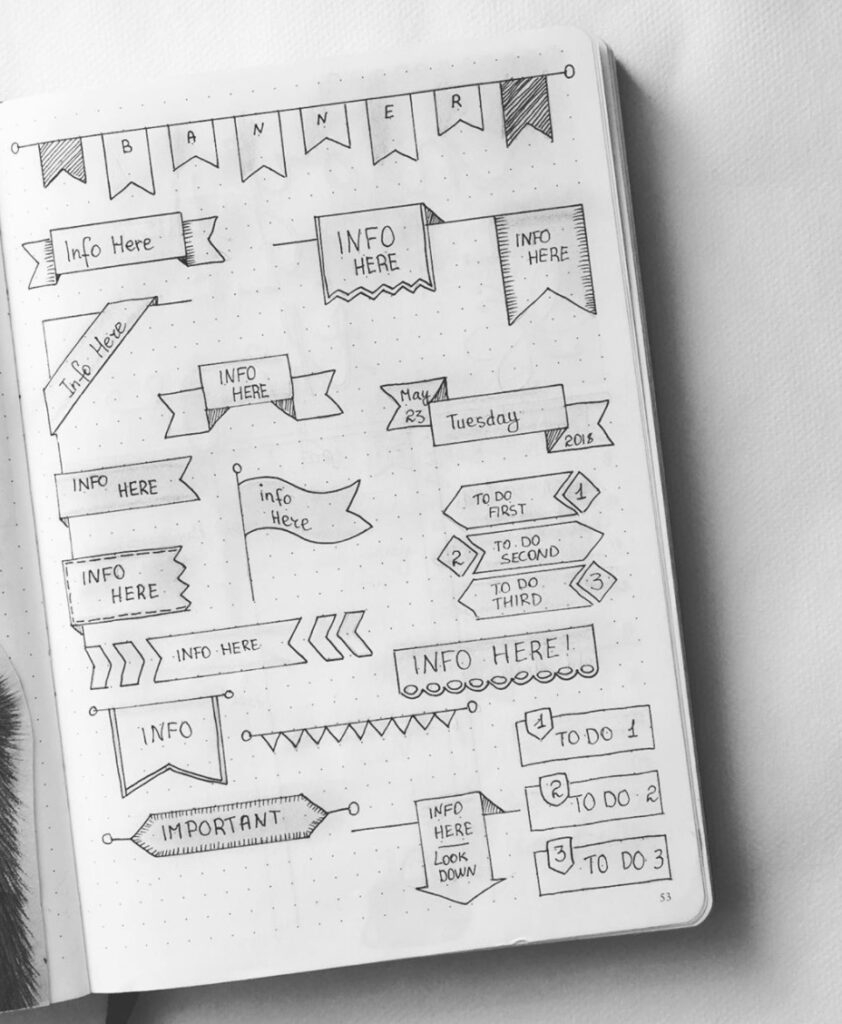 BANNER
Info Here
INFO
HERE
INFO
HERE
Info Here
INFO
HERE
May
23
Tuesday
2018
INFO HERE
info
Here
TO DO
FIRST
1
2
TO DO
SECOND
TO DO
THIRD
3
INFO
HERE
INFO HERE
INFO HERE!
INFO
1
TO DO 1
2
TO DO 2
3
TO DO 3
IMPORTANT
INFO
HERE
LOOK
DOWN
53